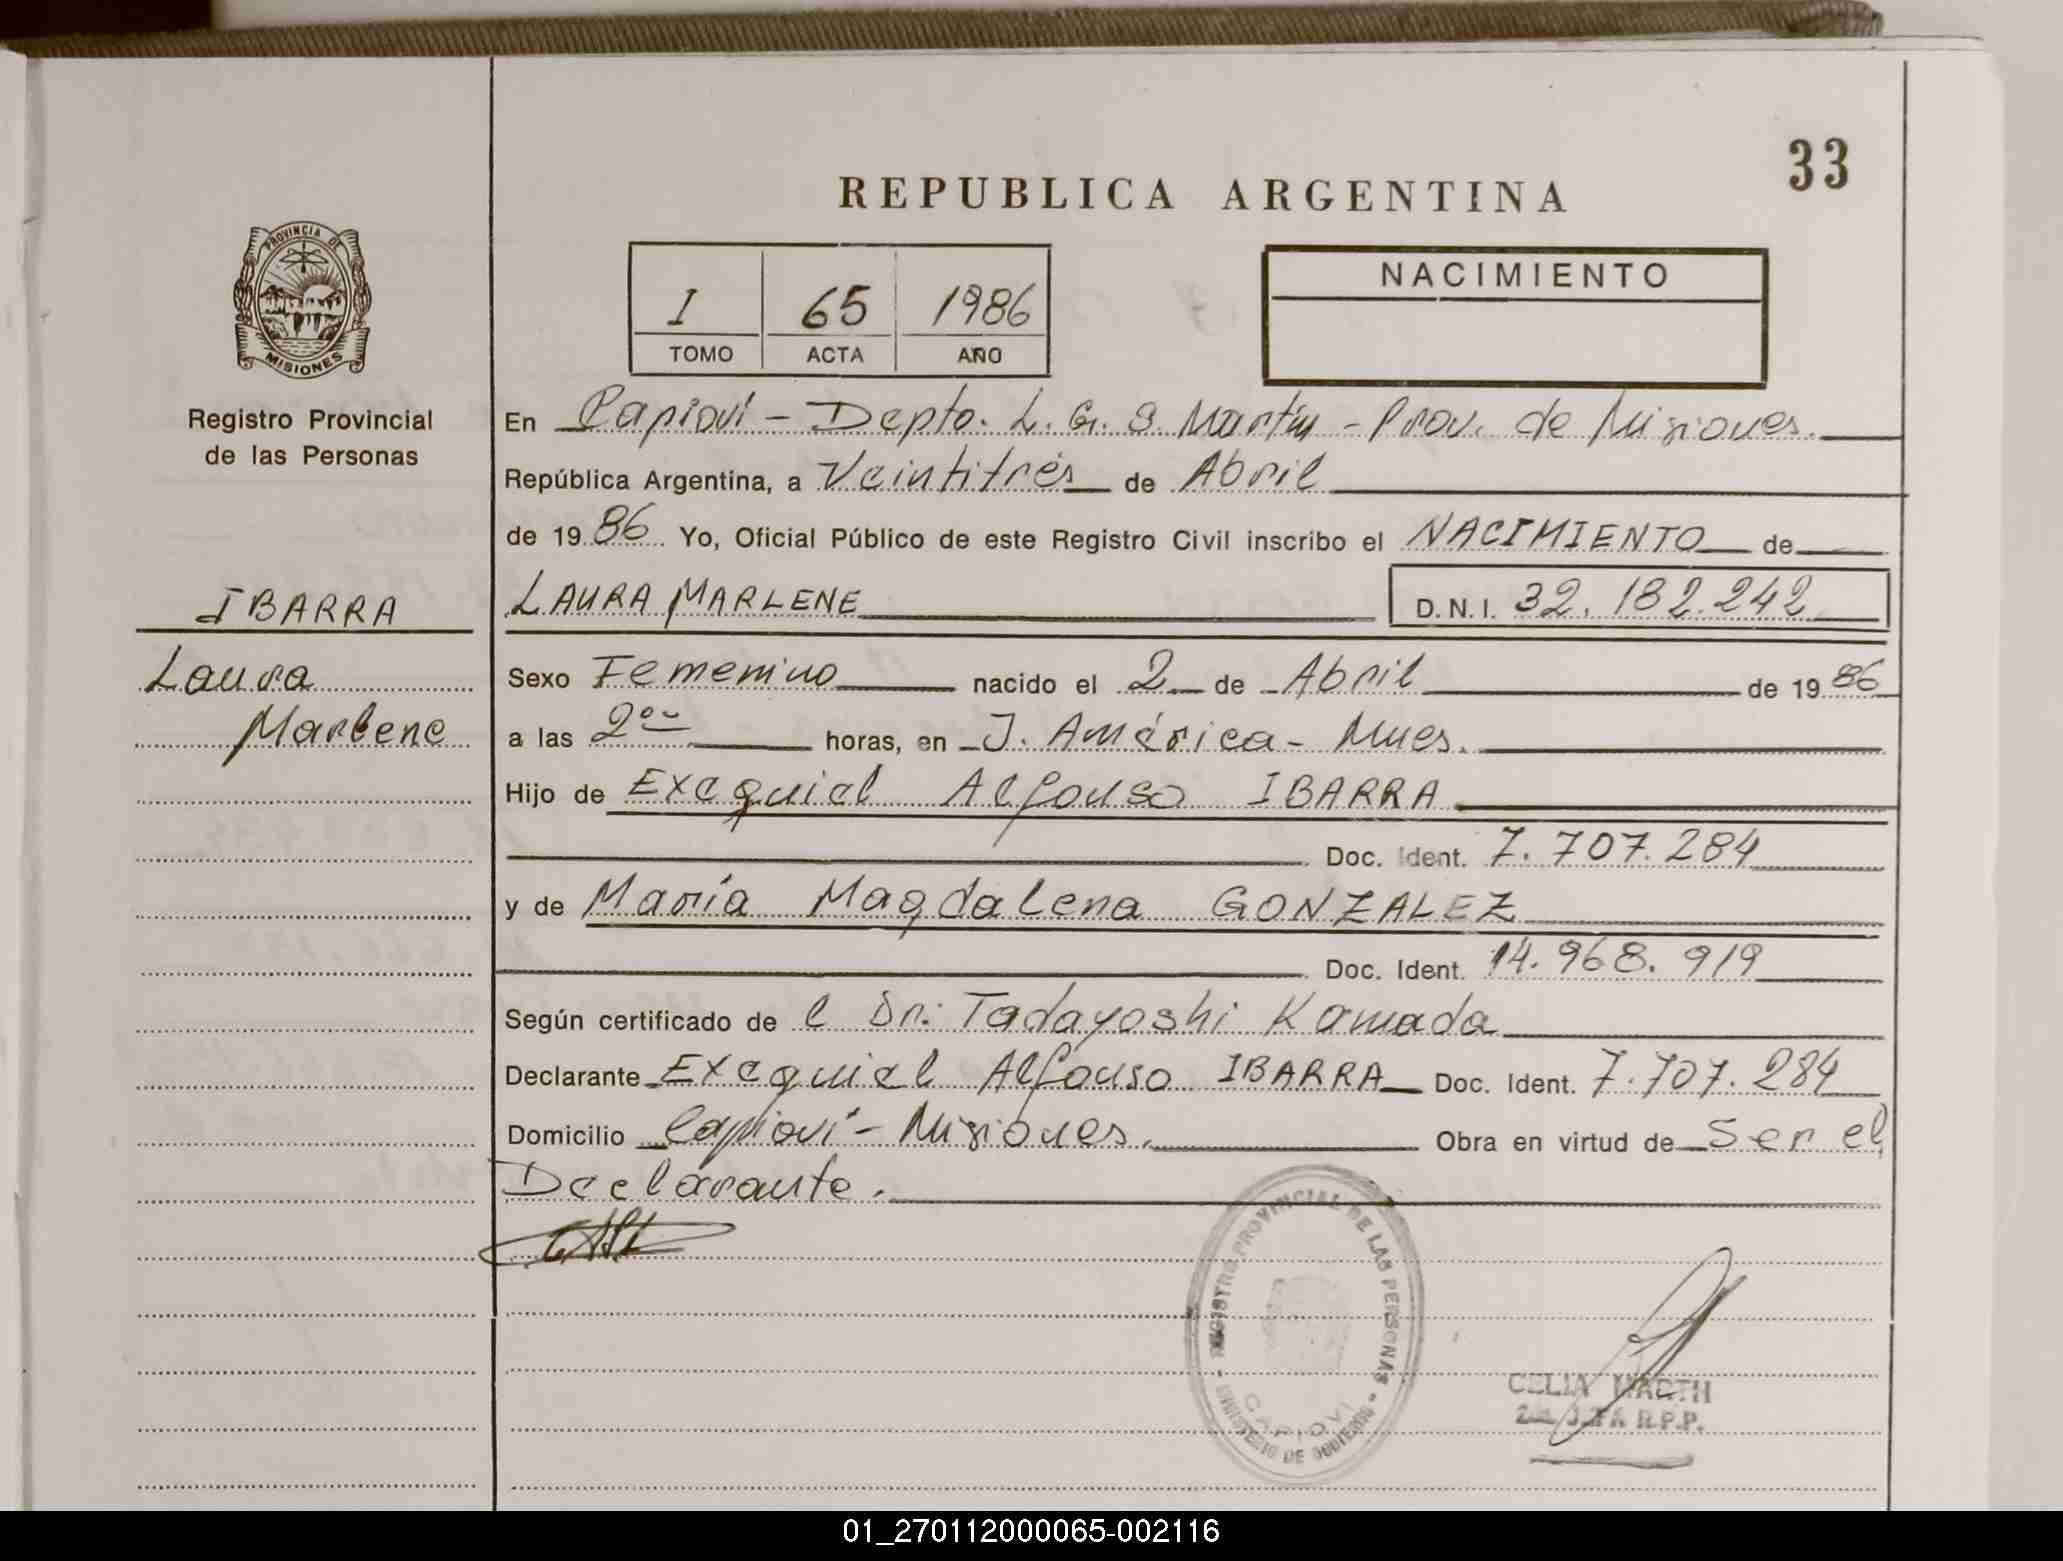 33
REPUBLICA ARGENTINA
PROVINCIA DE
MISIONES
Registro Provincial
de las Personas
I 65 1986
TOMO ACTA AÑO
NACIMIENTO
En Capioví - Depto. L. G. S. Martín - Prov. de Misiones.
República Argentina, a Veintitrés de Abril
de 19 86 Yo, Oficial Público de este Registro Civil inscribo el NACIMIENTO de
IBARRA
Laura
Marlene
LAURA MARLENE D.N.I. 32.182.242
Sexo Femenino nacido el 2 de Abril de 19 86
a las 2⁰⁰ horas, en J. América - Mnes.
Hijo de Exequiel Alfonso IBARRA
Doc. Ident. 7.707.284
y de María Magdalena GONZALEZ
Doc. Ident. 14.968.919
Según certificado de l Dr: Tadayoshi Kamada
Declarante Exequiel Alfonso IBARRA Doc. Ident. 7.707.284
Domicilio Capioví - Misiones. Obra en virtud de Ser el
Declarante.
REGISTRO PROVINCIAL DE LAS PERSONAS
CAPIOVI
MINISTERIO DE GOBIERNO
CELIA
R.P.P.
01_270112000065-002116